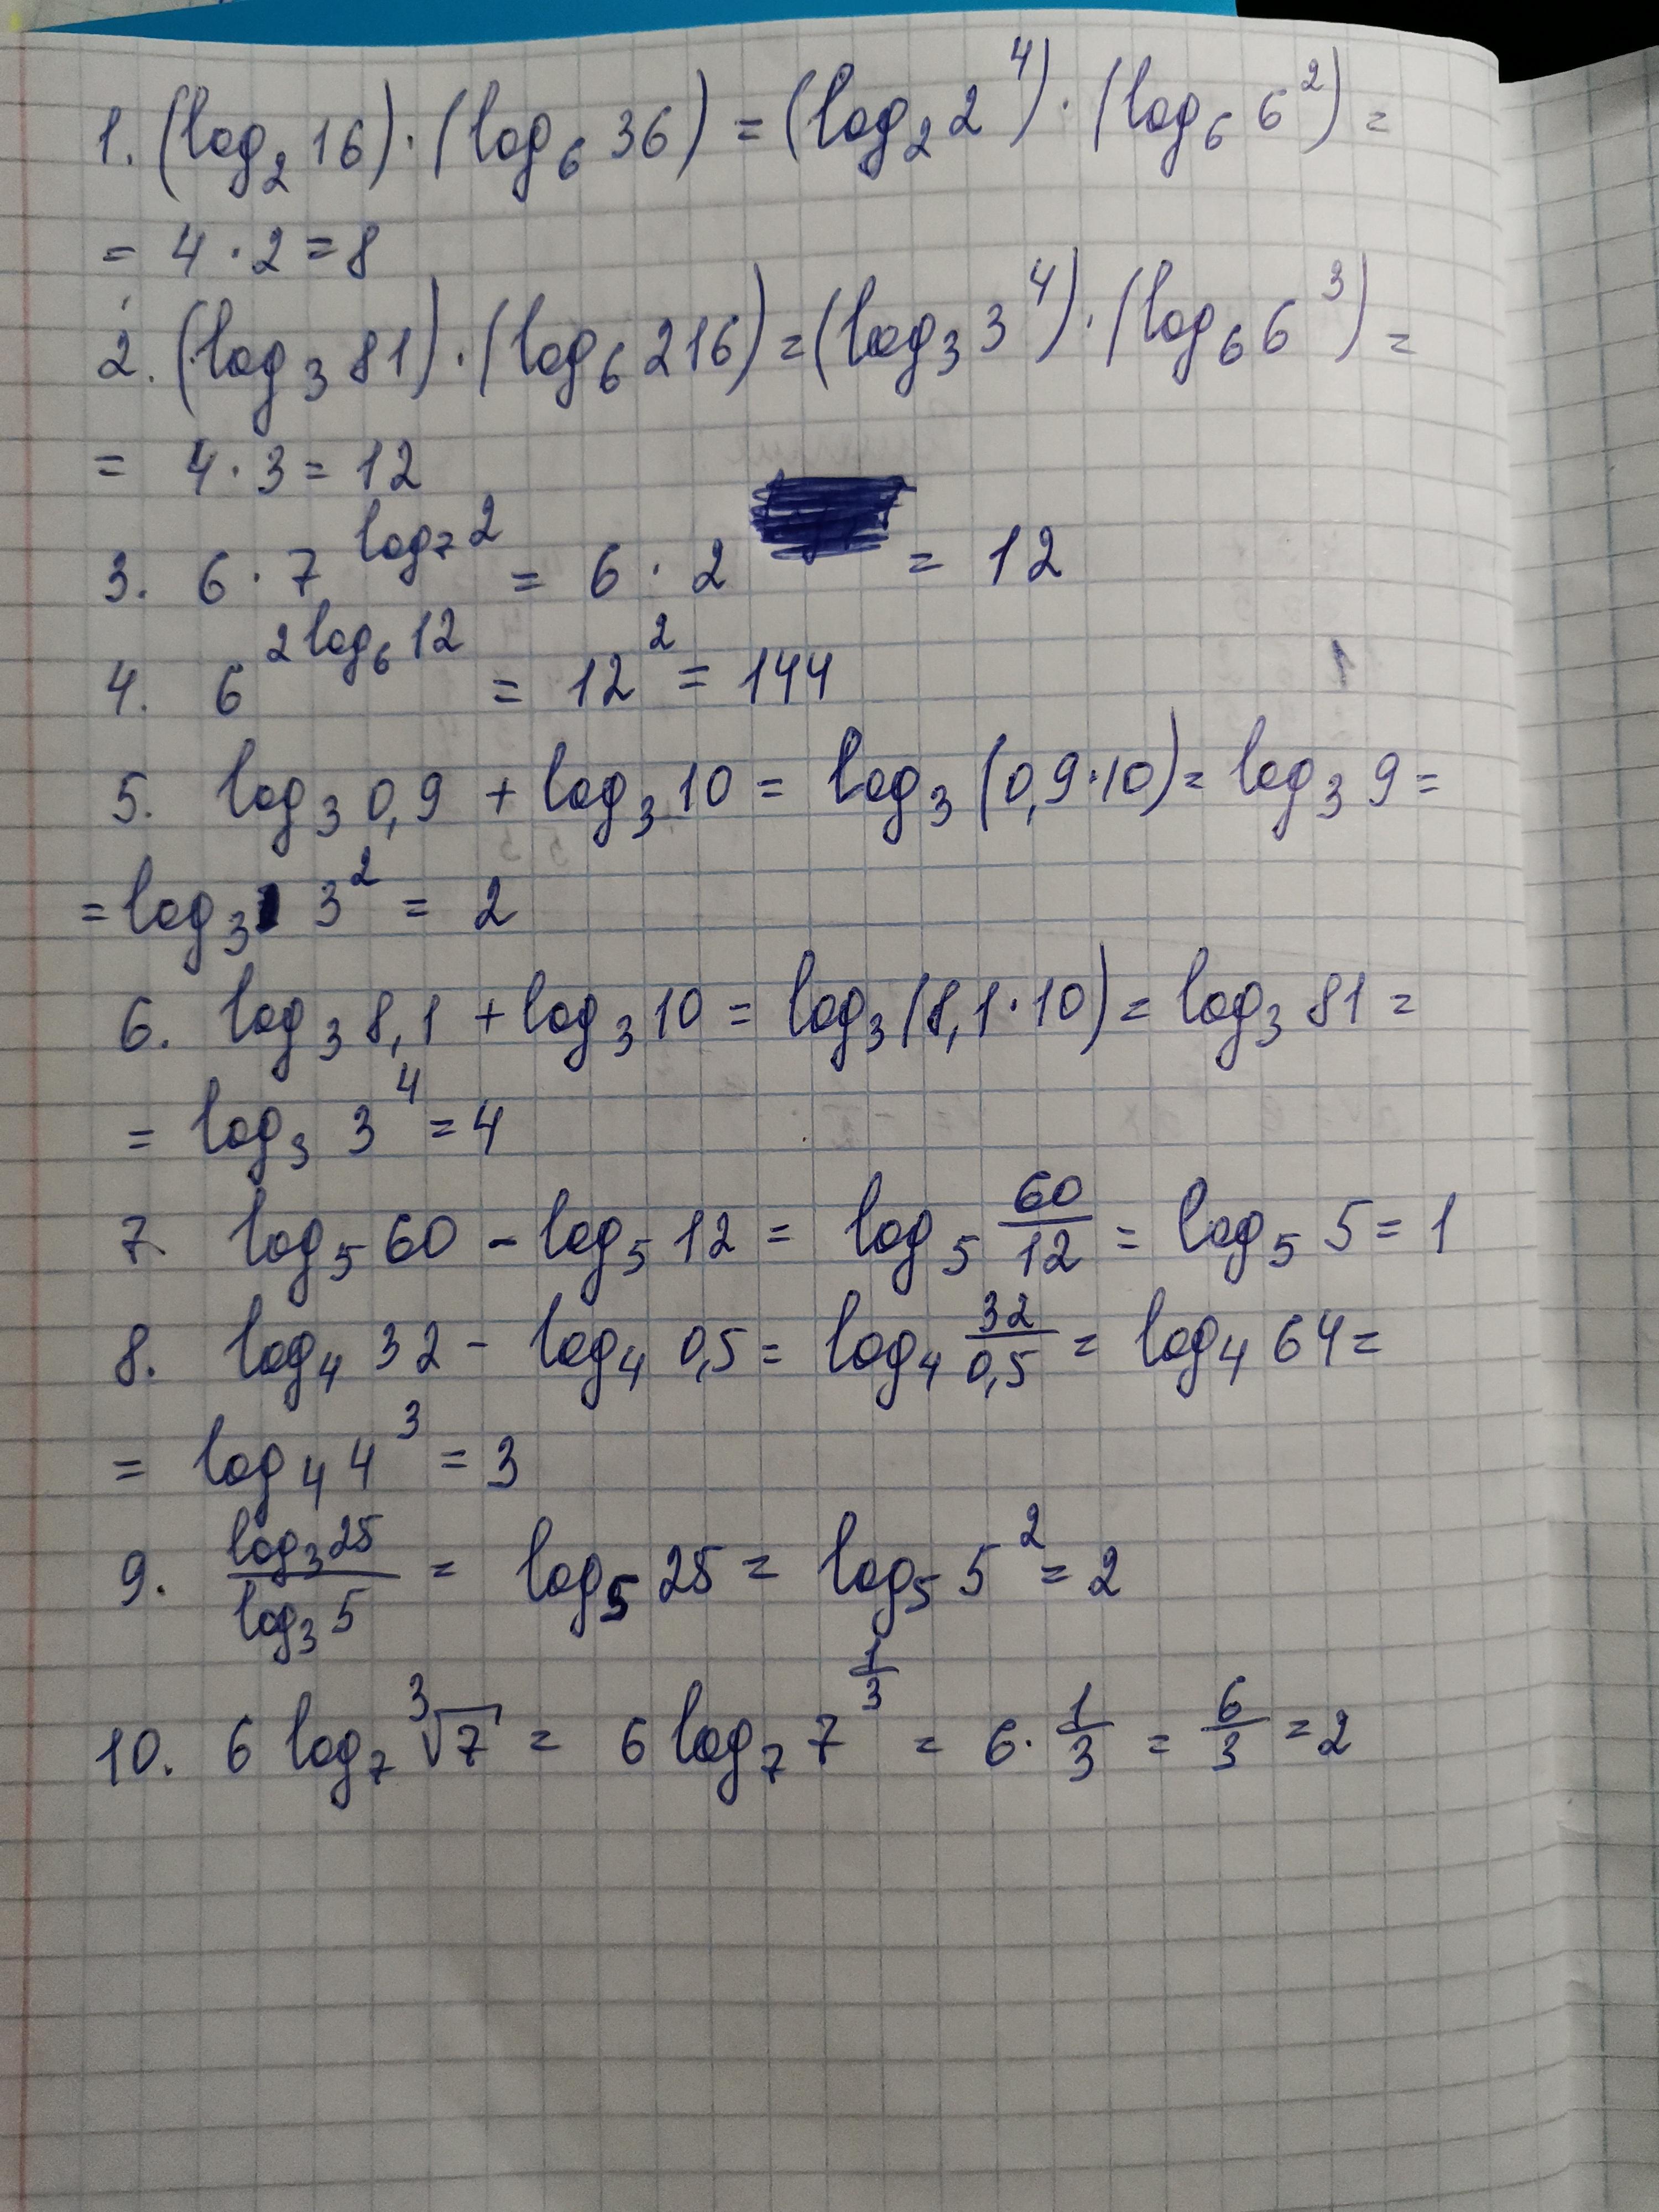 1. (log₂ 16) · (log₆ 36) = (log₂ 2⁴) · (log₆ 6²) =
= 4 · 2 = 8
2. (log₃ 81) · (log₆ 216) = (log₃ 3⁴) · (log₆ 6³) =
= 4 · 3 = 12
3. 6 · 7^(log₇ 2) = 6 · 2 = 12
4. 6^(2 log₆ 12) = 12² = 144
5. log₃ 0,9 + log₃ 10 = log₃ (0,9 · 10) = log₃ 9 =
= log₃ 3² = 2
6. log₃ 8,1 + log₃ 10 = log₃ (8,1 · 10) = log₃ 81 =
= log₃ 3⁴ = 4
7. log₅ 60 - log₅ 12 = log₅ 60/12 = log₅ 5 = 1
8. log₄ 32 - log₄ 0,5 = log₄ 32/0,5 = log₄ 64 =
= log₄ 4³ = 3
9. log₃ 25 / log₃ 5 = log₅ 25 = log₅ 5² = 2
10. 6 log₇ ³√7 = 6 log₇ 7^(1/3) = 6 · 1/3 = 6/3 = 2